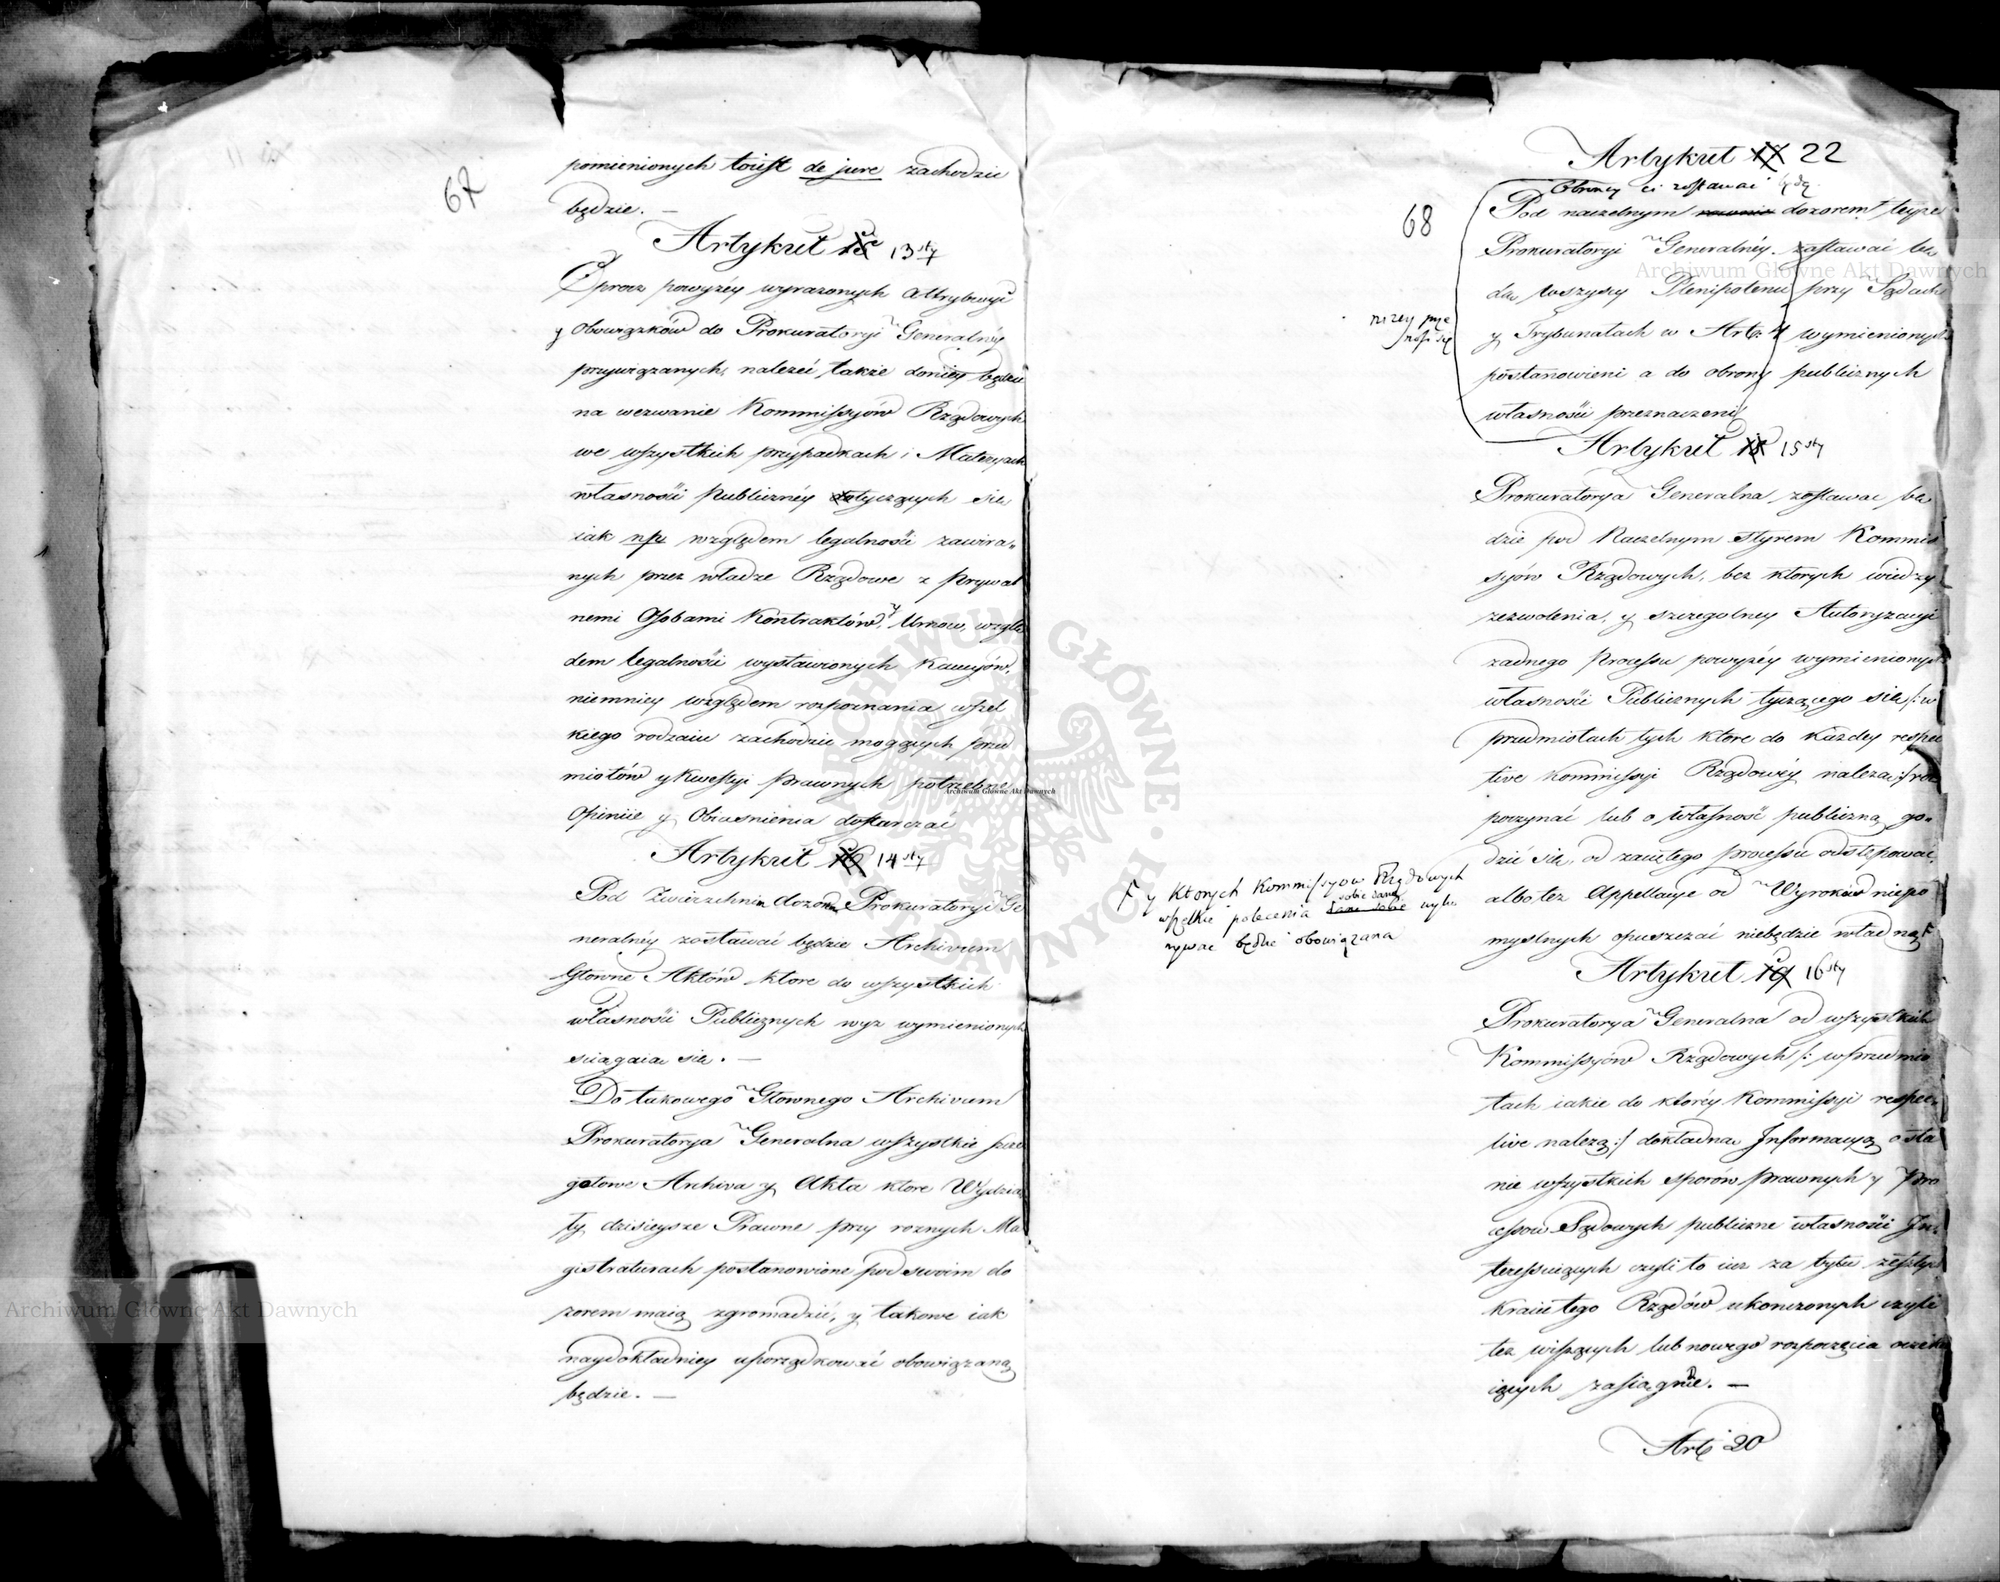 67
pomienionych toiest de jure zachodzić
będzie. —
Artykuł 13sty
Oprocz powyżéy wyrażonych attrybucyi
y Obowiązków do Prokuratoryi Generalnéy
przywiązanych, należéć także doniey będzie
na wezwanie Kommissyów Rządowych
we wszystkich przypadkach i Materyach
własności Publicznéy tyczących sie
iak np. względem legalności zawira„
nych przez władze Rządowe z Prywat
nemi Osobami Kontraktów, y Umow, wzglę
dem legalności wystawionych Kaucyów,
niemniey względem rozpoznania wszel
kiego rodzaiu zachodzić mogących przed
miotów y Kwestyi Prawnych potrzebne
Opiniie y Obiasnienia dostarczać
Artykuł 14sty
Pod Zwierzchnim dozorem Prokuratoryi Ge
neralnéy zostawać będzie Archivum
Głowne Aktów ktore do wszystkich
własności Publicznych wyż wymienionych
sciągaia sie. —
Do takowego Głownego Archivum
Prokuratorya Generalna wszystkie szcze
gołowe Archiva y Akta ktore Wydzia
ły dzisieysze Prawne przy roznych Ma
gistraturach postanowione pod swoim do
zorem maią zgromadzić, y takowe iak
naydokładniey uporządkować obowiązaną
będzie. —
68
Artykuł XX 22
Obroncy ci zostawać będą
Pod naczelnym dozorem teyże
Prokuratoryi Generalnéy zostawać bę
da wszyscy Plenipotenci przy Sądach
y Trybunałach w Art: wymienionych
postanowieni a do obrony publicznych
własności przeznaczeni
niżey prze
nosi się
Artykuł 18 15sty
Prokuratorya Generalna zostawać bę
dzie pod Naczelnym styrem Kommis
syów Rządowych, bez ktorych wiedzy
zezwolenia, y szczegolney Autoryzacyi
żadnego Processu powyżéy wymienionych
własności Publicznych tyczącego sie /: w
przedmiotach tych ktore do każdey respec
tive Kommissyi Rządowéy należą :/ roz
poczynać lub o własność publiczną go„
dzić sie, od zaczętego processu odstępować,
albo też Appellacye od Wyroków niepo
myslnych opuszczać niebędzie władną F
F y ktorych Kommissyow Rządowych
wszelkie polecenia sobie dane wyko
nywac będzie obowiązana
Artykuł 19 16sty
Prokuratorya Generalna od wszystkich
Kommissyów Rządowych /: w przedmio
tach iakie do któréy Kommissyi respec„
tive należą :/ dokładna Informacyą o sta
nie wszystkich sporów Prawnych y Pro
cessow Sądowych publiczne własności In„
teressuiących czyli to iuż za bytu zeszłych
kraiu tego Rządów ukonczonych czyli
też wiszących lub nowego rozpoczęcia oczeku
iących zasiągnie. —
Art: 20